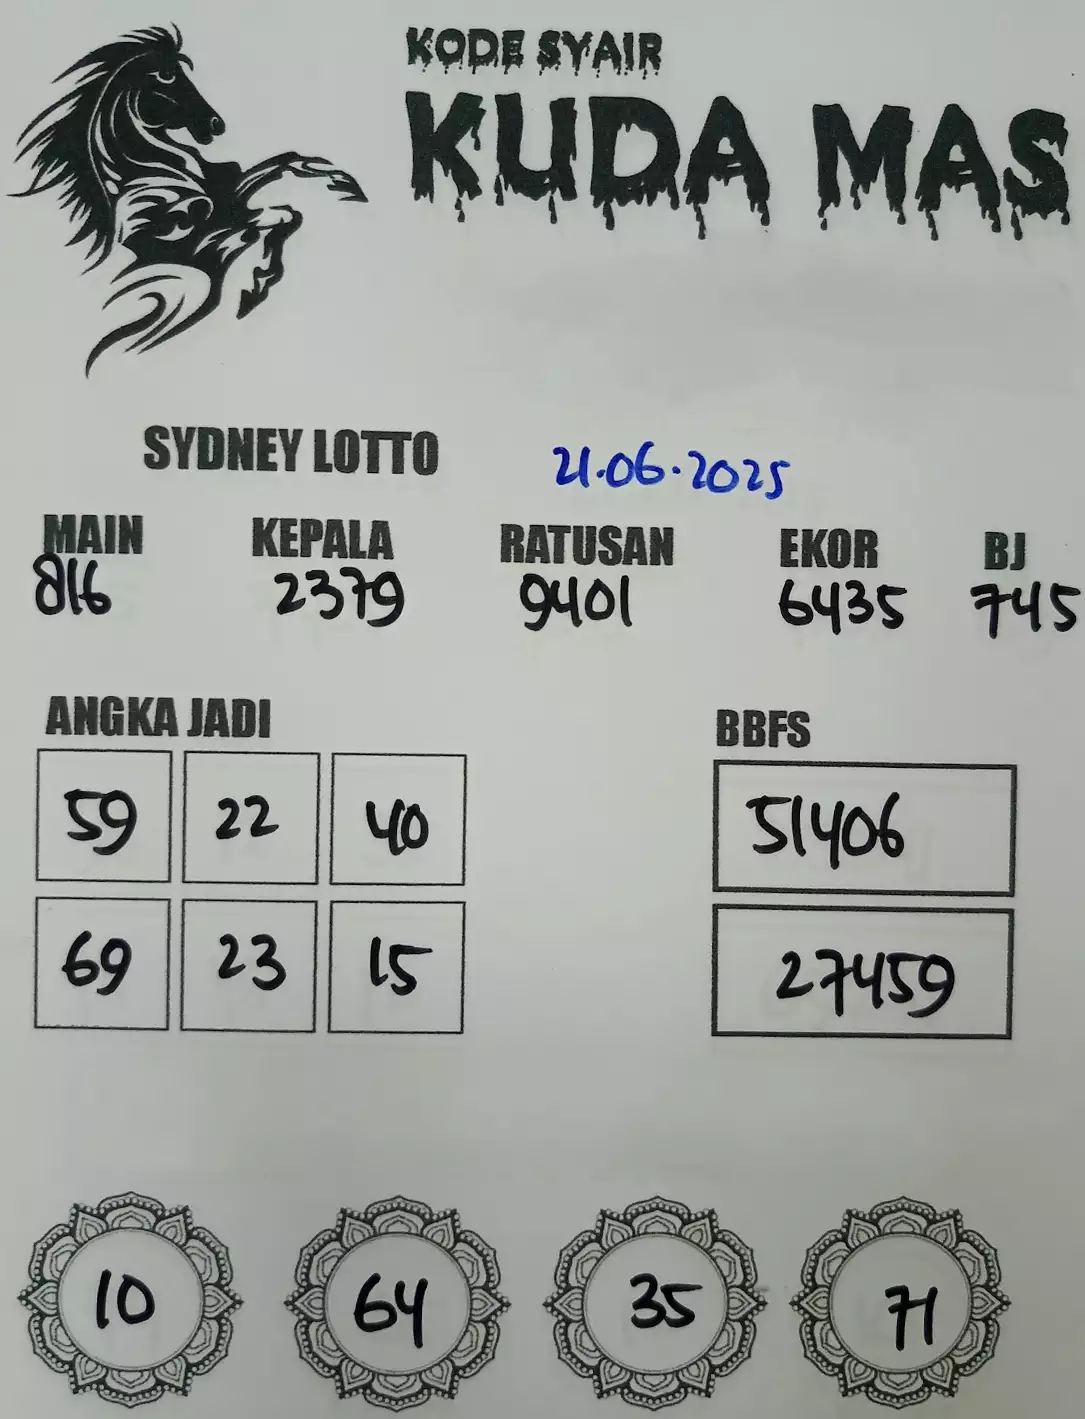 KODE SYAIR
KUDA MAS
SYDNEY LOTTO 21.06.2025
MAIN KEPALA RATUSAN EKOR BJ
816 2379 9401 6435 745
ANGKA JADI BBFS
59 22 40 51406
69 23 15 27459
10 64 35 71